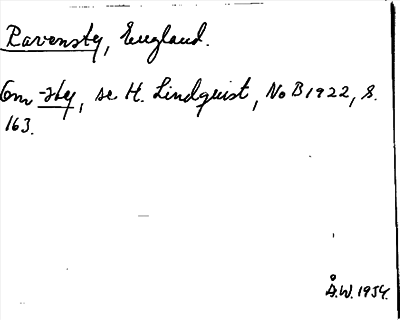 Ravensty, England.
Om -sty, se H. Lindquist, NoB 1922, s.
163.
Å.W. 1954.